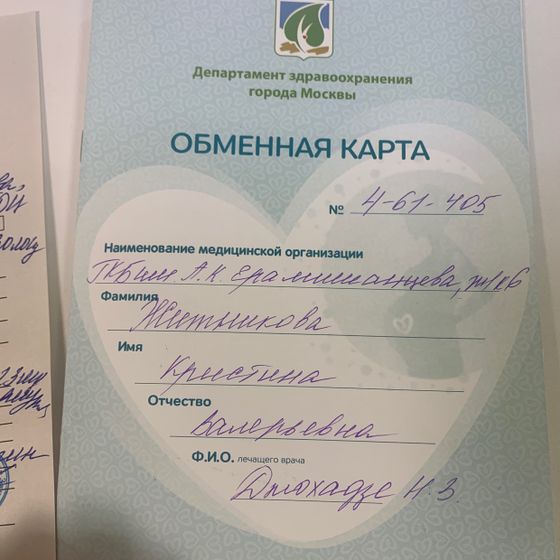 Департамент здравоохранения
города Москвы
ОБМЕННАЯ КАРТА
№ 4-61-405
Наименование медицинской организации
ГКБ им А.К. Ерамишанцева, ж/к6
Фамилия
Житникова
Имя
Кристина
Отчество
Валерьевна
Ф.И.О. лечащего врача
Джохадзе Н.З.